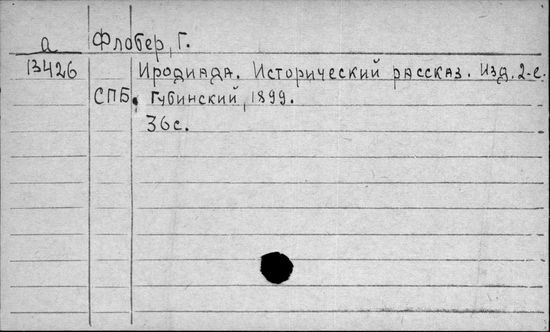 а Флобер, Г.
13426 Иродиада. Исторический рассказ. Изд. 2-е.
СПБ. Губинский, 1899.
36с.